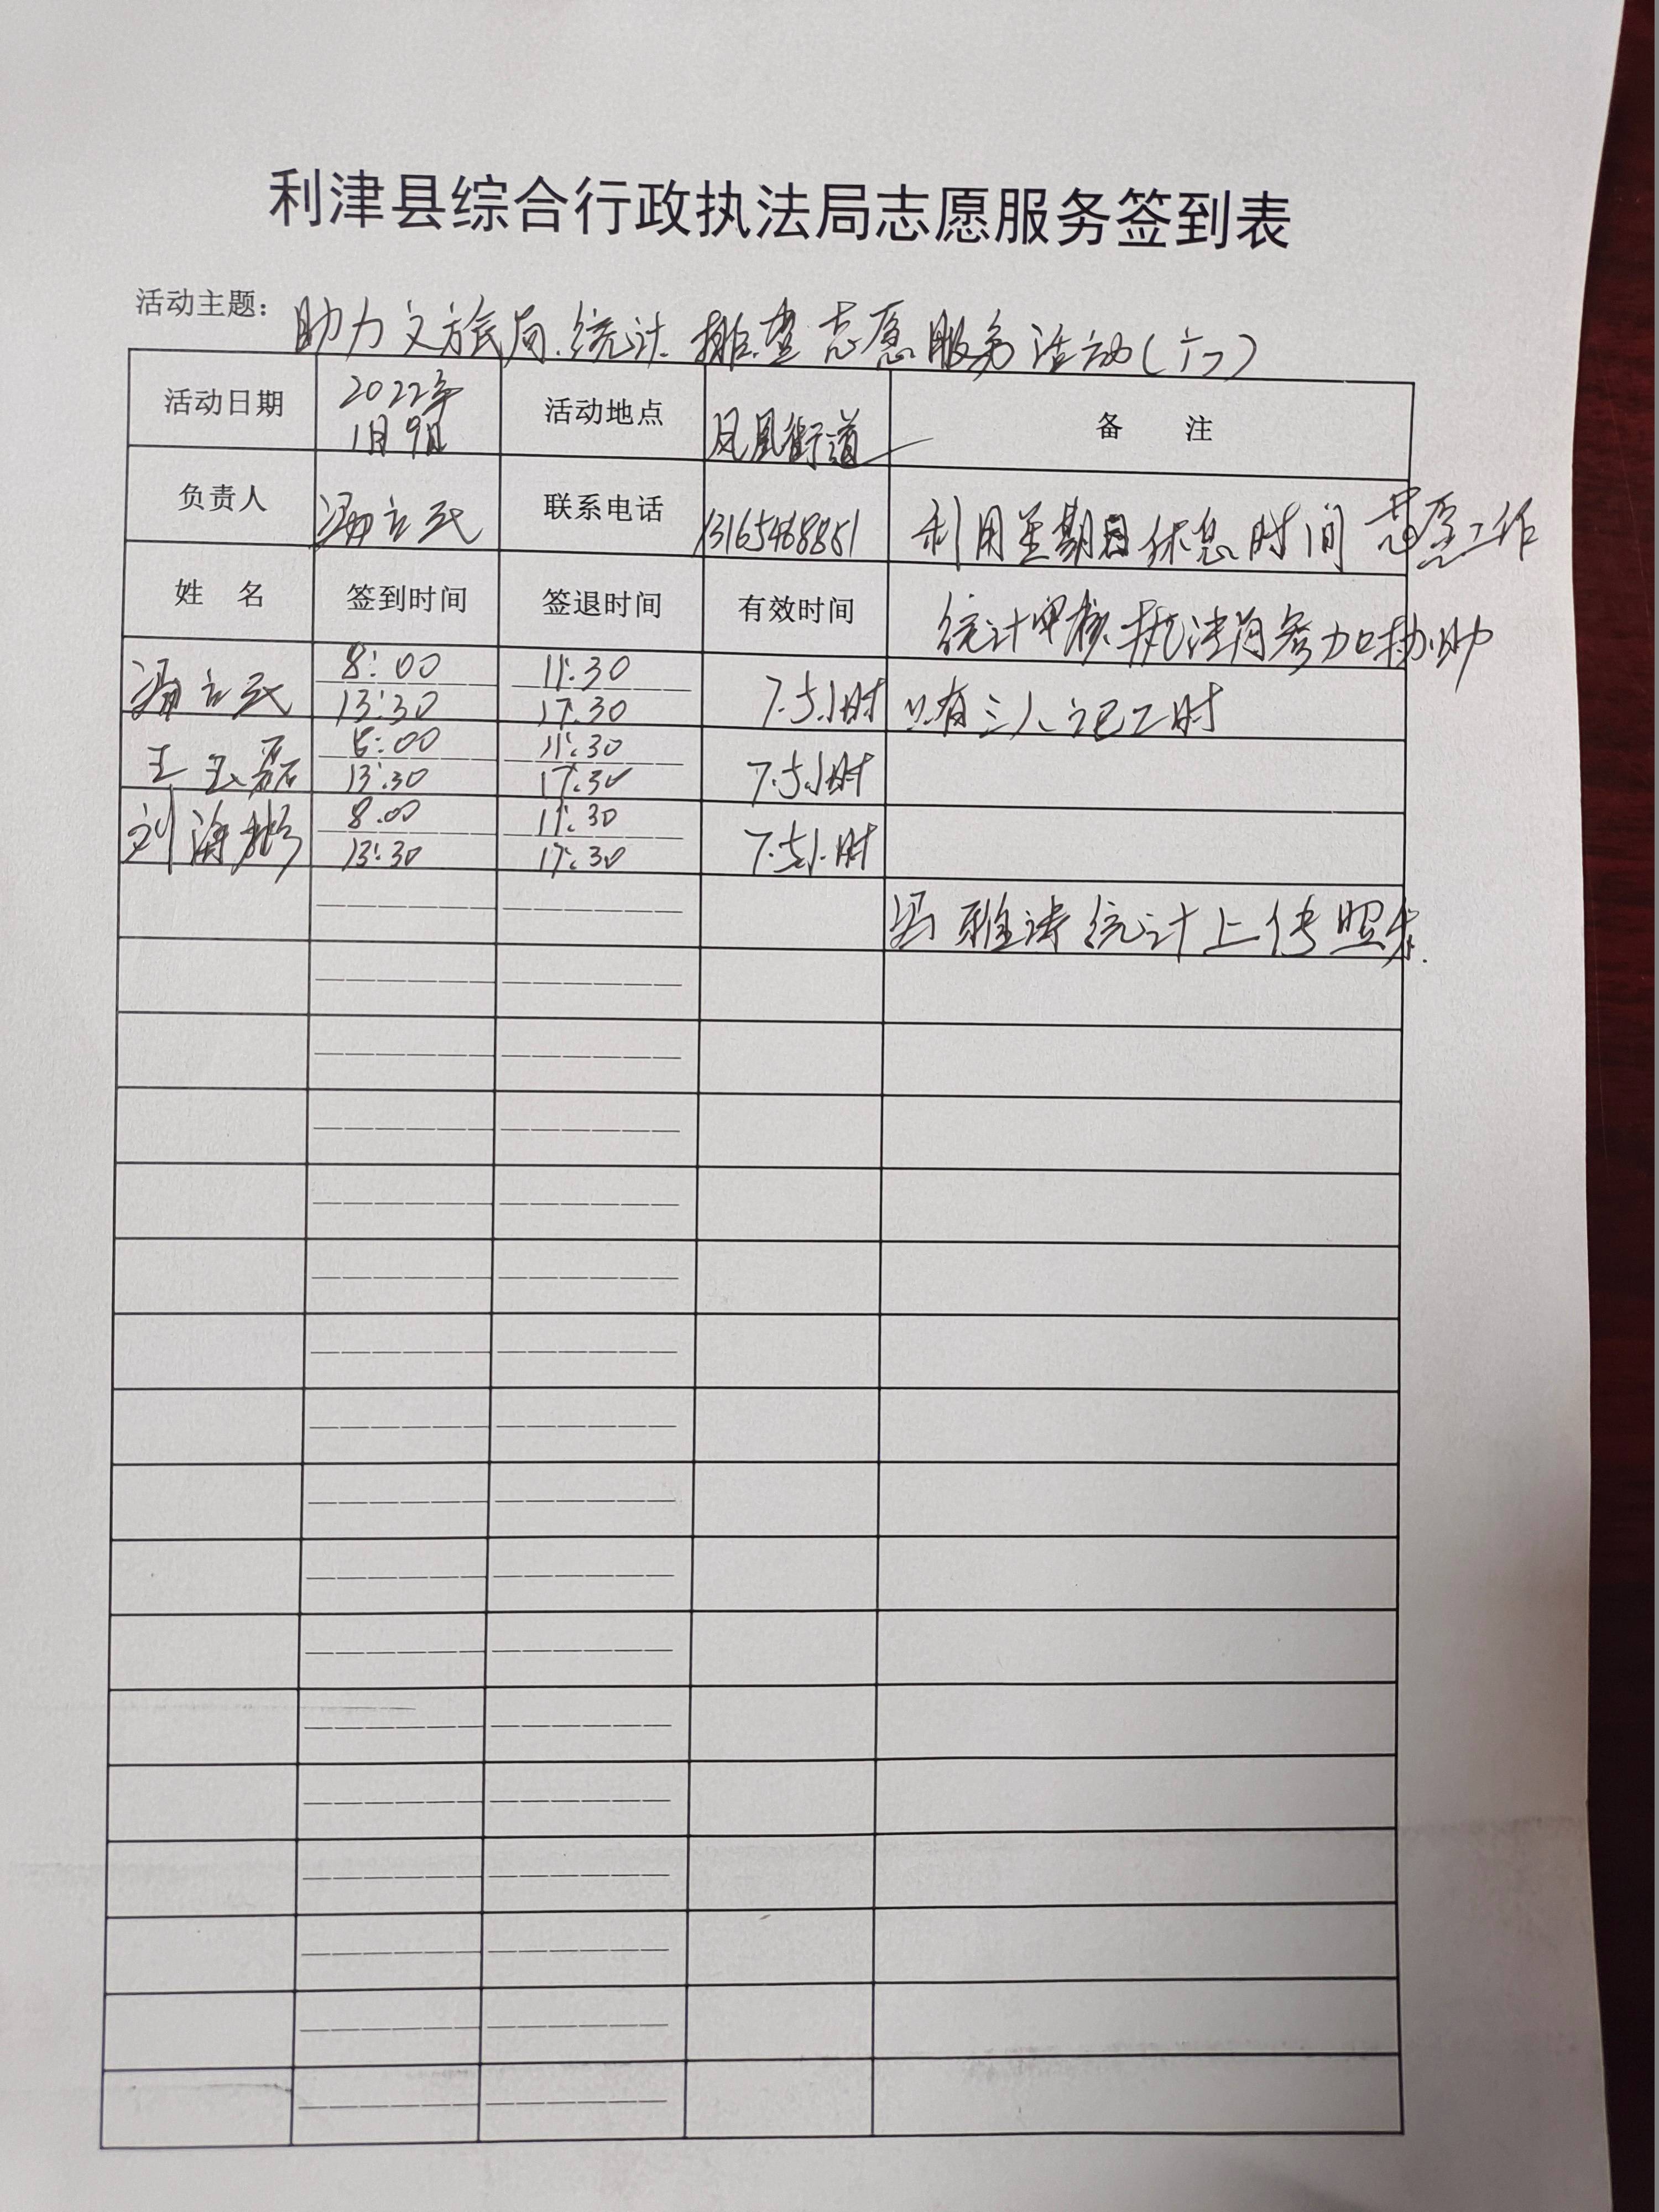 利津县综合行政执法局志愿服务签到表
活动主题：助力文旅局统计排查志愿服务活动（六）
活动日期 2022年1月9日 活动地点 凤凰街道 备 注
负责人 联系电话 13165468851 利用星期日休息时间 志愿工作
姓 名 签到时间 签退时间 有效时间 统计审核 执法 参加协助
8:00 11:30
13:30 17:30 7.5小时 只有三人记工时
王玉磊 8:00 11:30
13:30 17:30 7.5小时
刘海 8:00 11:30
13:30 17:30 7.5小时
冯雅涛统计上传照